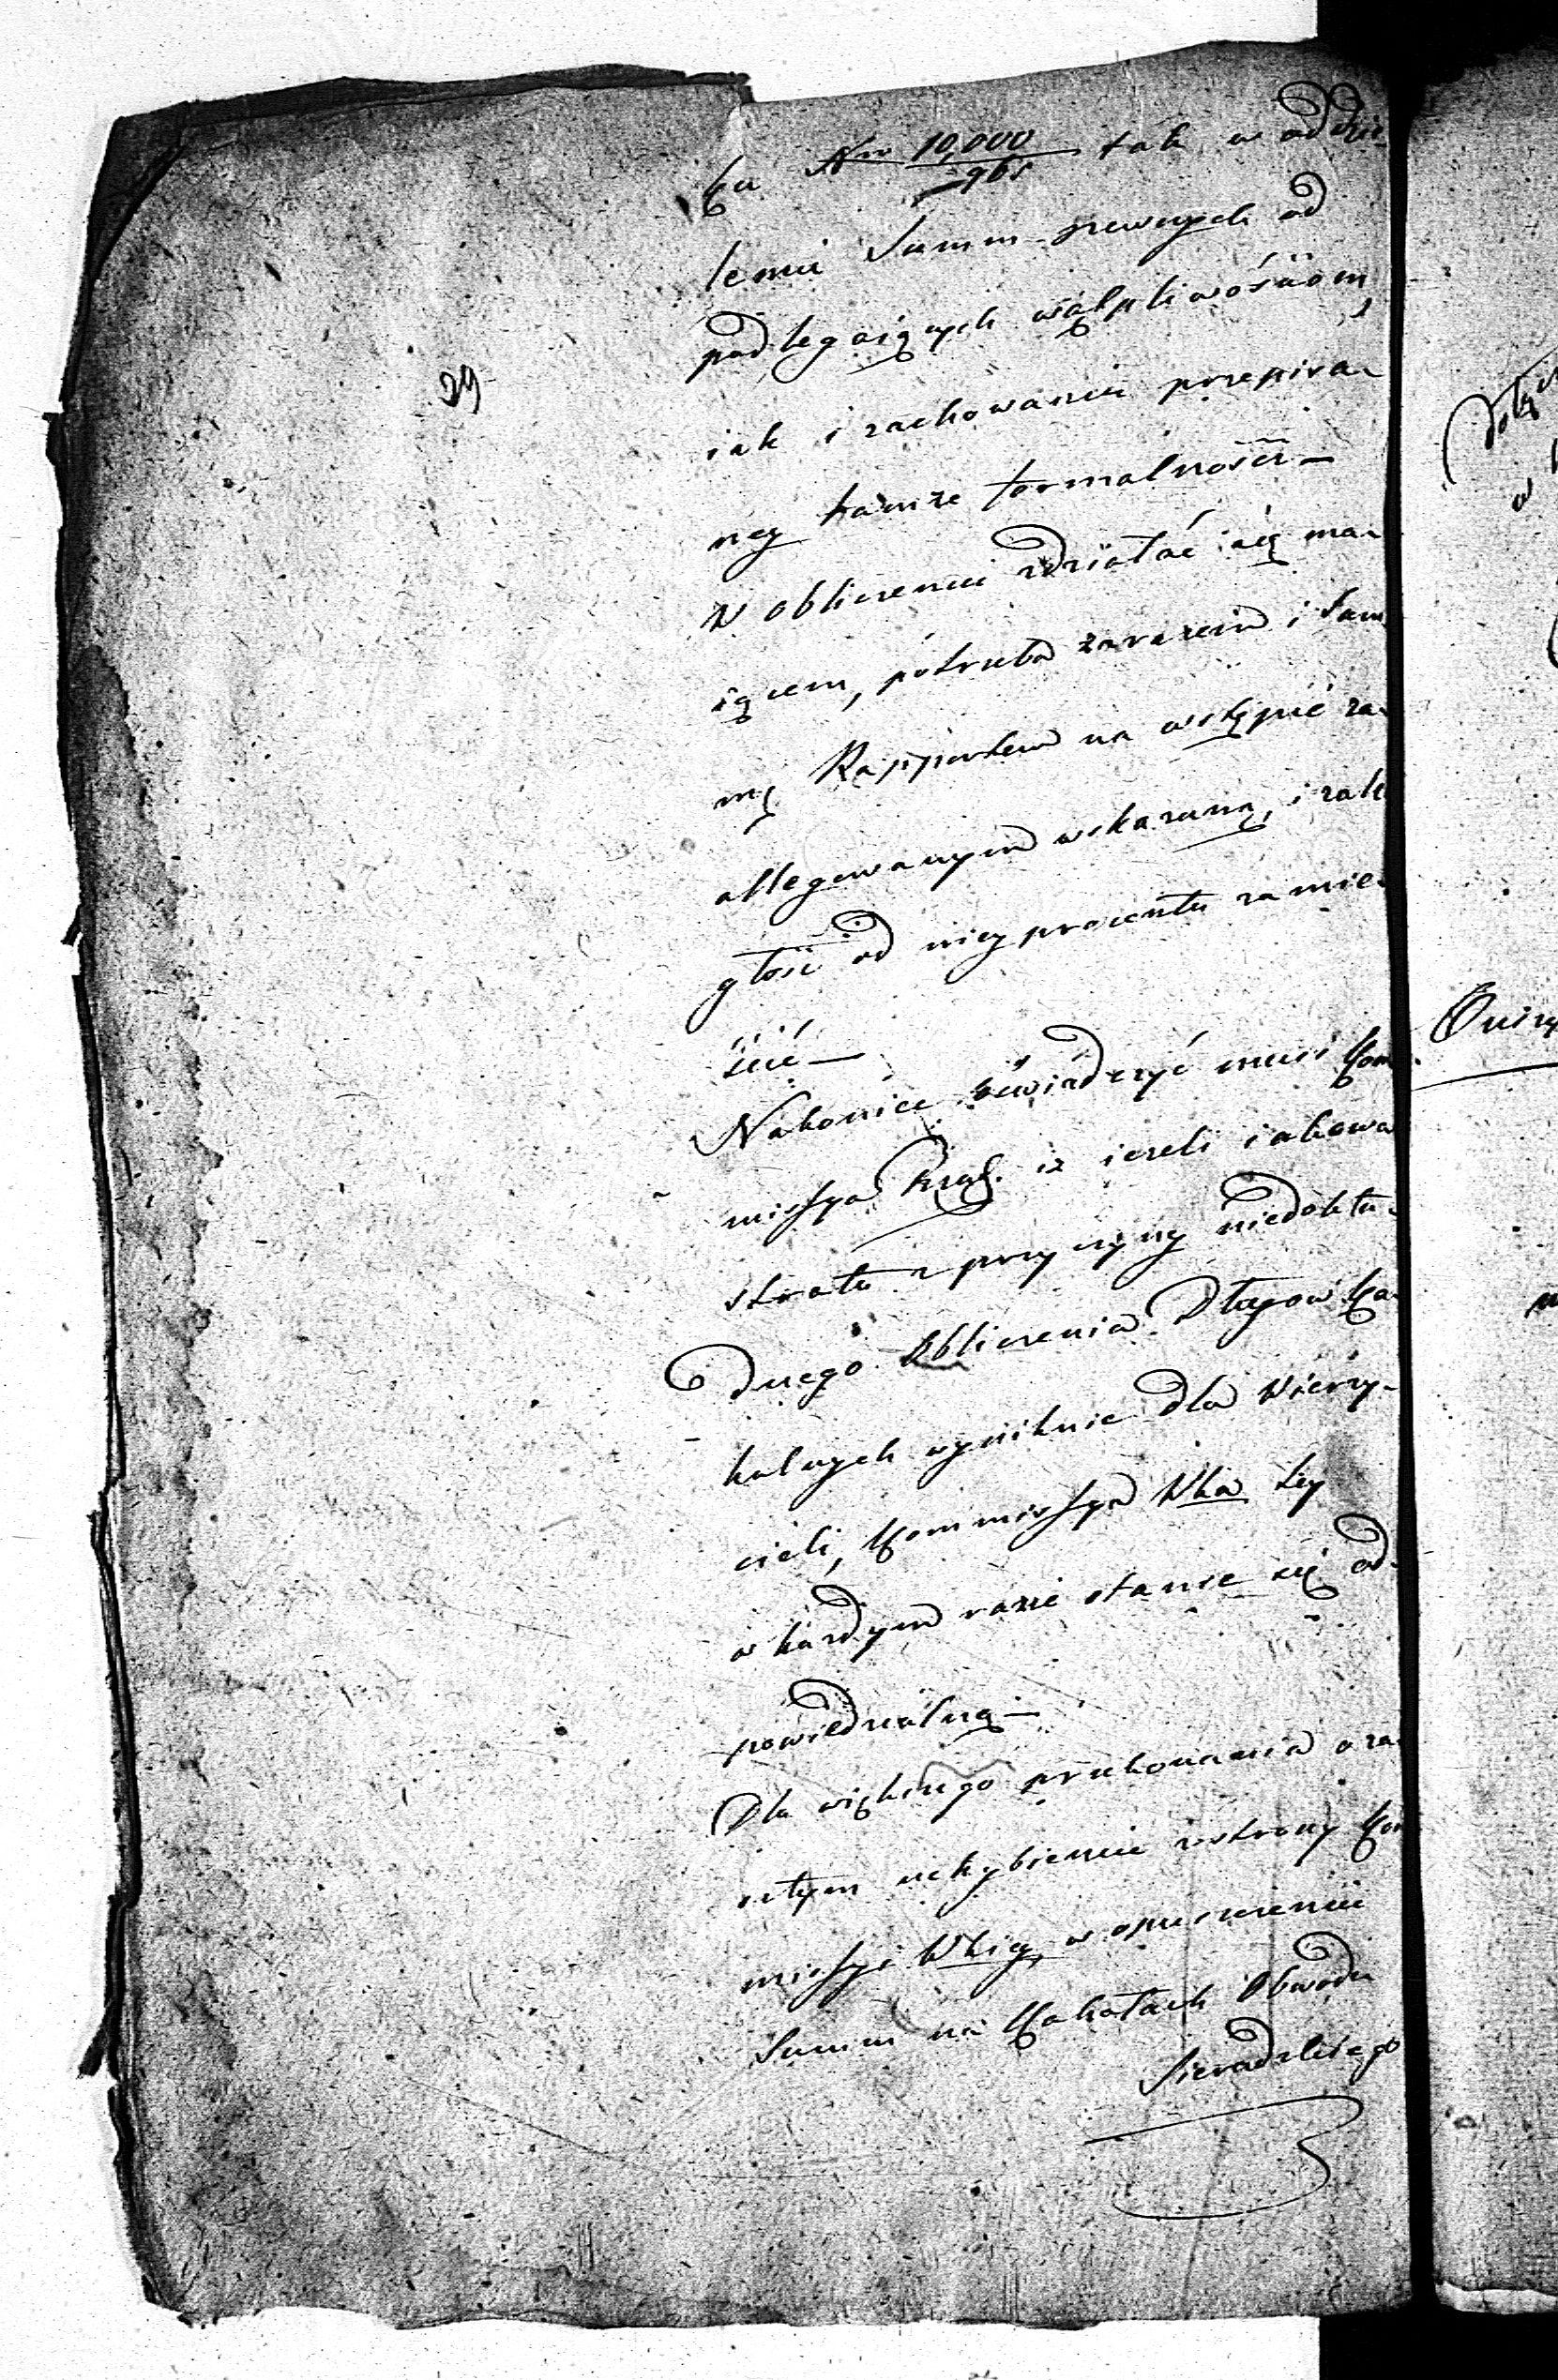 29
ka Nro 10,000/961 tak w oddzie-
leniu Summ pewnych od
podlegaiących wątpliwościom,
iak i zachowaniu przepisa-
ney tamże formalności —
W obliczeniu zdziałać się ma-
iącem, potrzeba zarazem i Sum-
mę Rapportem na wstępie za-
allegowanym wskazaną, i zale-
głość od niey procentu zamie-
ścić —
Nakoniec oświadczyć musi Kom-
missya Rząd. iż ieżeli iakowa
strata z przyczyny niedokła-
dnego Obliczenia Długow Ka-
halnych wyniknie dla Wierzy-
cieli, Kommissya Wka tey
w każdym razie stanie się od-
powiedzialną —
Dla większego przekonania o za-
szłym uchybieniu z strony Kom-
missyi Wkiey, w opuszczeniu
Summ na Kahałach Obwodu
Sieradzkiego